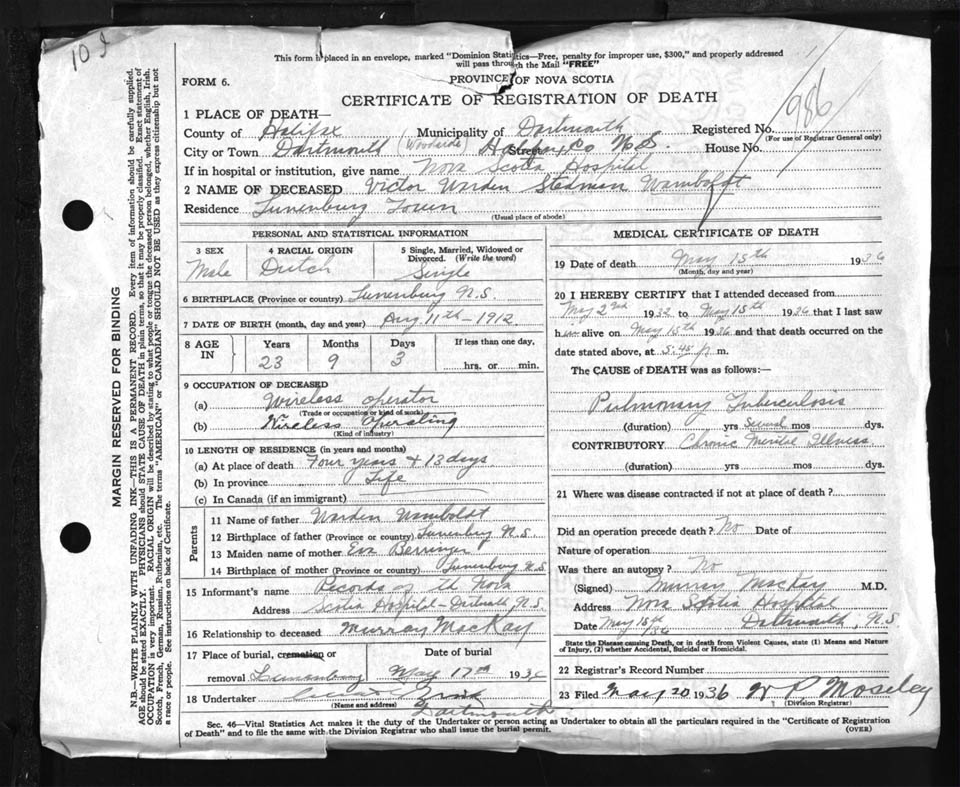 10 J
This form is placed in an envelope, marked "Dominion Statistics—Free, penalty for improper use, $300," and properly addressed
will pass through the Mail "FREE"
PROVINCE OF NOVA SCOTIA
FORM 6.
CERTIFICATE OF REGISTRATION OF DEATH
986
1 PLACE OF DEATH—
County of Halifax Municipality of Dartmouth Registered No.
(For use of Registrar General only)
City or Town Dartmouth (Woodside) Street Halifax Co N.S. House No.
If in hospital or institution, give name Nova Scotia Hospital
2 NAME OF DECEASED Victor Warden Stedman Wamboldt
Residence Lunenburg Town
(Usual place of abode)
PERSONAL AND STATISTICAL INFORMATION
3 SEX Male
4 RACIAL ORIGIN Dutch
5 Single, Married, Widowed or Divorced. (Write the word) Single
6 BIRTHPLACE (Province or country) Lunenburg N.S.
7 DATE OF BIRTH (month, day and year) Aug. 11th - 1912
8 AGE IN Years 23 Months 9 Days 3 If less than one day, hrs. or min.
9 OCCUPATION OF DECEASED
(a) Wireless operator
(Trade or occupation or kind of work)
(b) Wireless Operating
(Kind of industry)
10 LENGTH OF RESIDENCE (in years and months)
(a) At place of death Four years + 13 days
(b) In province Life
(c) In Canada (if an immigrant)
Parents
11 Name of father Warden Wamboldt
12 Birthplace of father (Province or country) Lunenburg N.S.
13 Maiden name of mother Eva Berringer
14 Birthplace of mother (Province or country) Lunenburg N.S.
15 Informant's name Records of the Nova
Address Scotia Hospital - Dartmouth, N.S.
16 Relationship to deceased Murray MacKay
17 Place of burial, cremation or removal Lunenburg
Date of burial May 17th 1936
18 Undertaker
(Name and address)
Dartmouth
MEDICAL CERTIFICATE OF DEATH
19 Date of death May 15th 1936
(Month, day and year)
20 I HEREBY CERTIFY that I attended deceased from
May 2nd 1932 to May 15th 1936 that I last saw
him alive on May 15th 1936 and that death occurred on the
date stated above, at 5:45 p m.
The CAUSE of DEATH was as follows:—
Pulmonary Tuberculosis
(duration) yrs Several mos dys.
CONTRIBUTORY Chronic Mental Illness
(duration) yrs mos dys.
21 Where was disease contracted if not at place of death?
Did an operation precede death? No Date of
Nature of operation
Was there an autopsy? No
(Signed) Murray MacKay M.D.
Address Nova Scotia Hospital
Date May 15th/36 Dartmouth, N.S.
State the Disease causing Death, or in death from Violent Causes, state (1) Means and Nature
of Injury, (2) whether Accidental, Suicidal or Homicidal.
22 Registrar's Record Number
23 Filed May 20 1936 W P. Moseley
(Division Registrar)
Sec. 46—Vital Statistics Act makes it the duty of the Undertaker or person acting as Undertaker to obtain all the particulars required in the "Certificate of Registration
of Death" and to file the same with the Division Registrar who shall issue the burial permit.
(OVER)
MARGIN RESERVED FOR BINDING
N.B.—WRITE PLAINLY WITH UNFADING INK—THIS IS A PERMANENT RECORD. Every item of information should be carefully supplied.
AGE should be stated EXACTLY. PHYSICIANS should STATE CAUSE OF DEATH in plain terms, so that it may be properly classified. Exact statement of
OCCUPATION is very important. RACIAL ORIGIN will be described by stating to what people or tongue the deceased person belonged, whether English, Irish,
Scotch, French, German, Russian, Ruthenian, etc. The terms "AMERICAN" or "CANADIAN" SHOULD NOT BE USED as they express citizenship but not
a race or people. See instructions on back of Certificate.